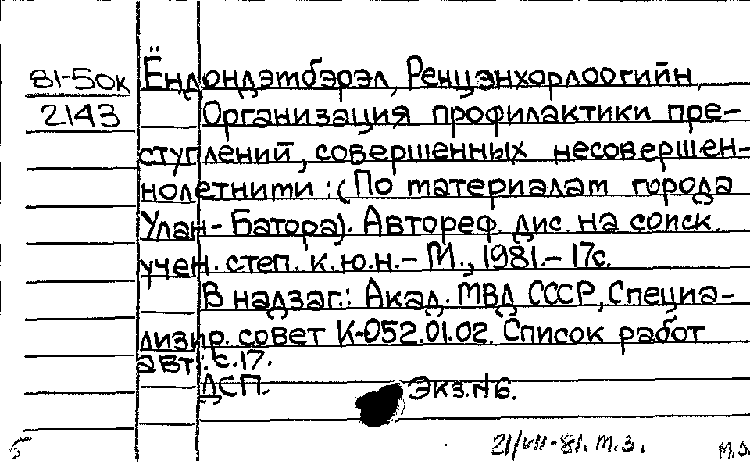 81-5ок Ёндондэмбэрэл, Ренцэнхорлоогийн
2143 Организация профилактики пре-
ступлений, совершенных несовершен-
нолетними: (По материалам города
Улан-Батора). Автореф. дис. на соиск.
учен. степ. к.ю.н. – М., 1981. – 17с.
В надзаг.: Акад. МВД СССР, Специа-
лизир. совет К-052.01.02. Список работ
авт.: с.17.
ДСП. Экз.№6.
21/VII-81. м.з. м.з.